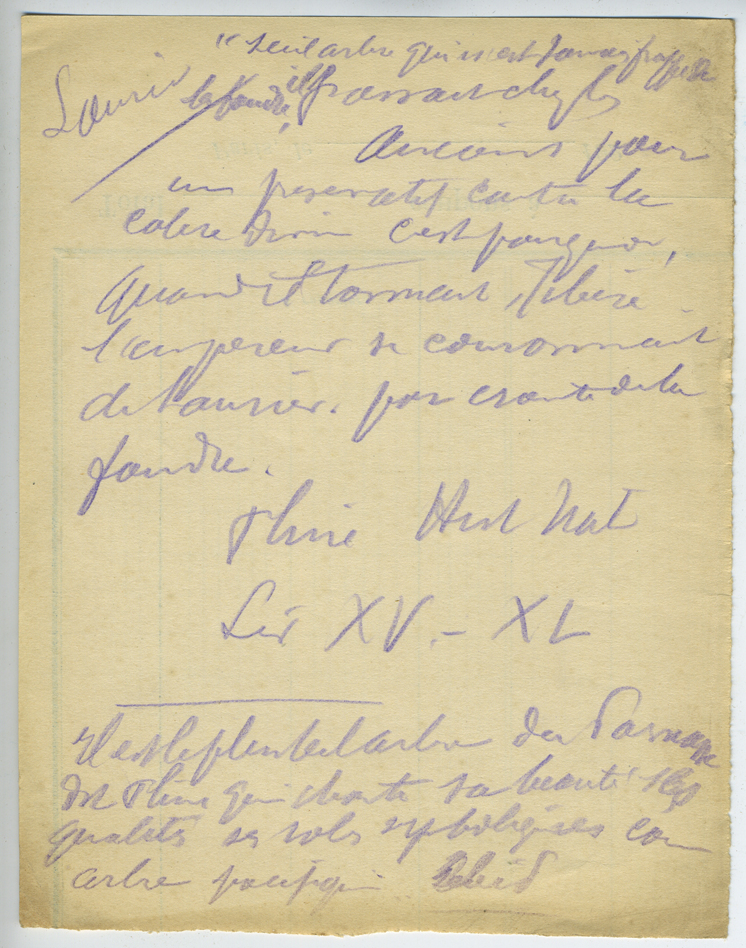 Laurier
"seul arbre qui n'est jamais frappé de
la foudre, il passait chez les
Anciens pour
un préservatif contre la
colere divine c'est pourquoi,
quand il tonnait, Tibère
l'empereur se couronnait
de laurier. par crainte de la
foudre.
Pline Hist Nat
Liv XV – XL
Il est le plus bel arbre du Parnasse
dit Pline qui chante sa beauté ses
qualités ses roles symboliques com
arbre pacifique Ibid